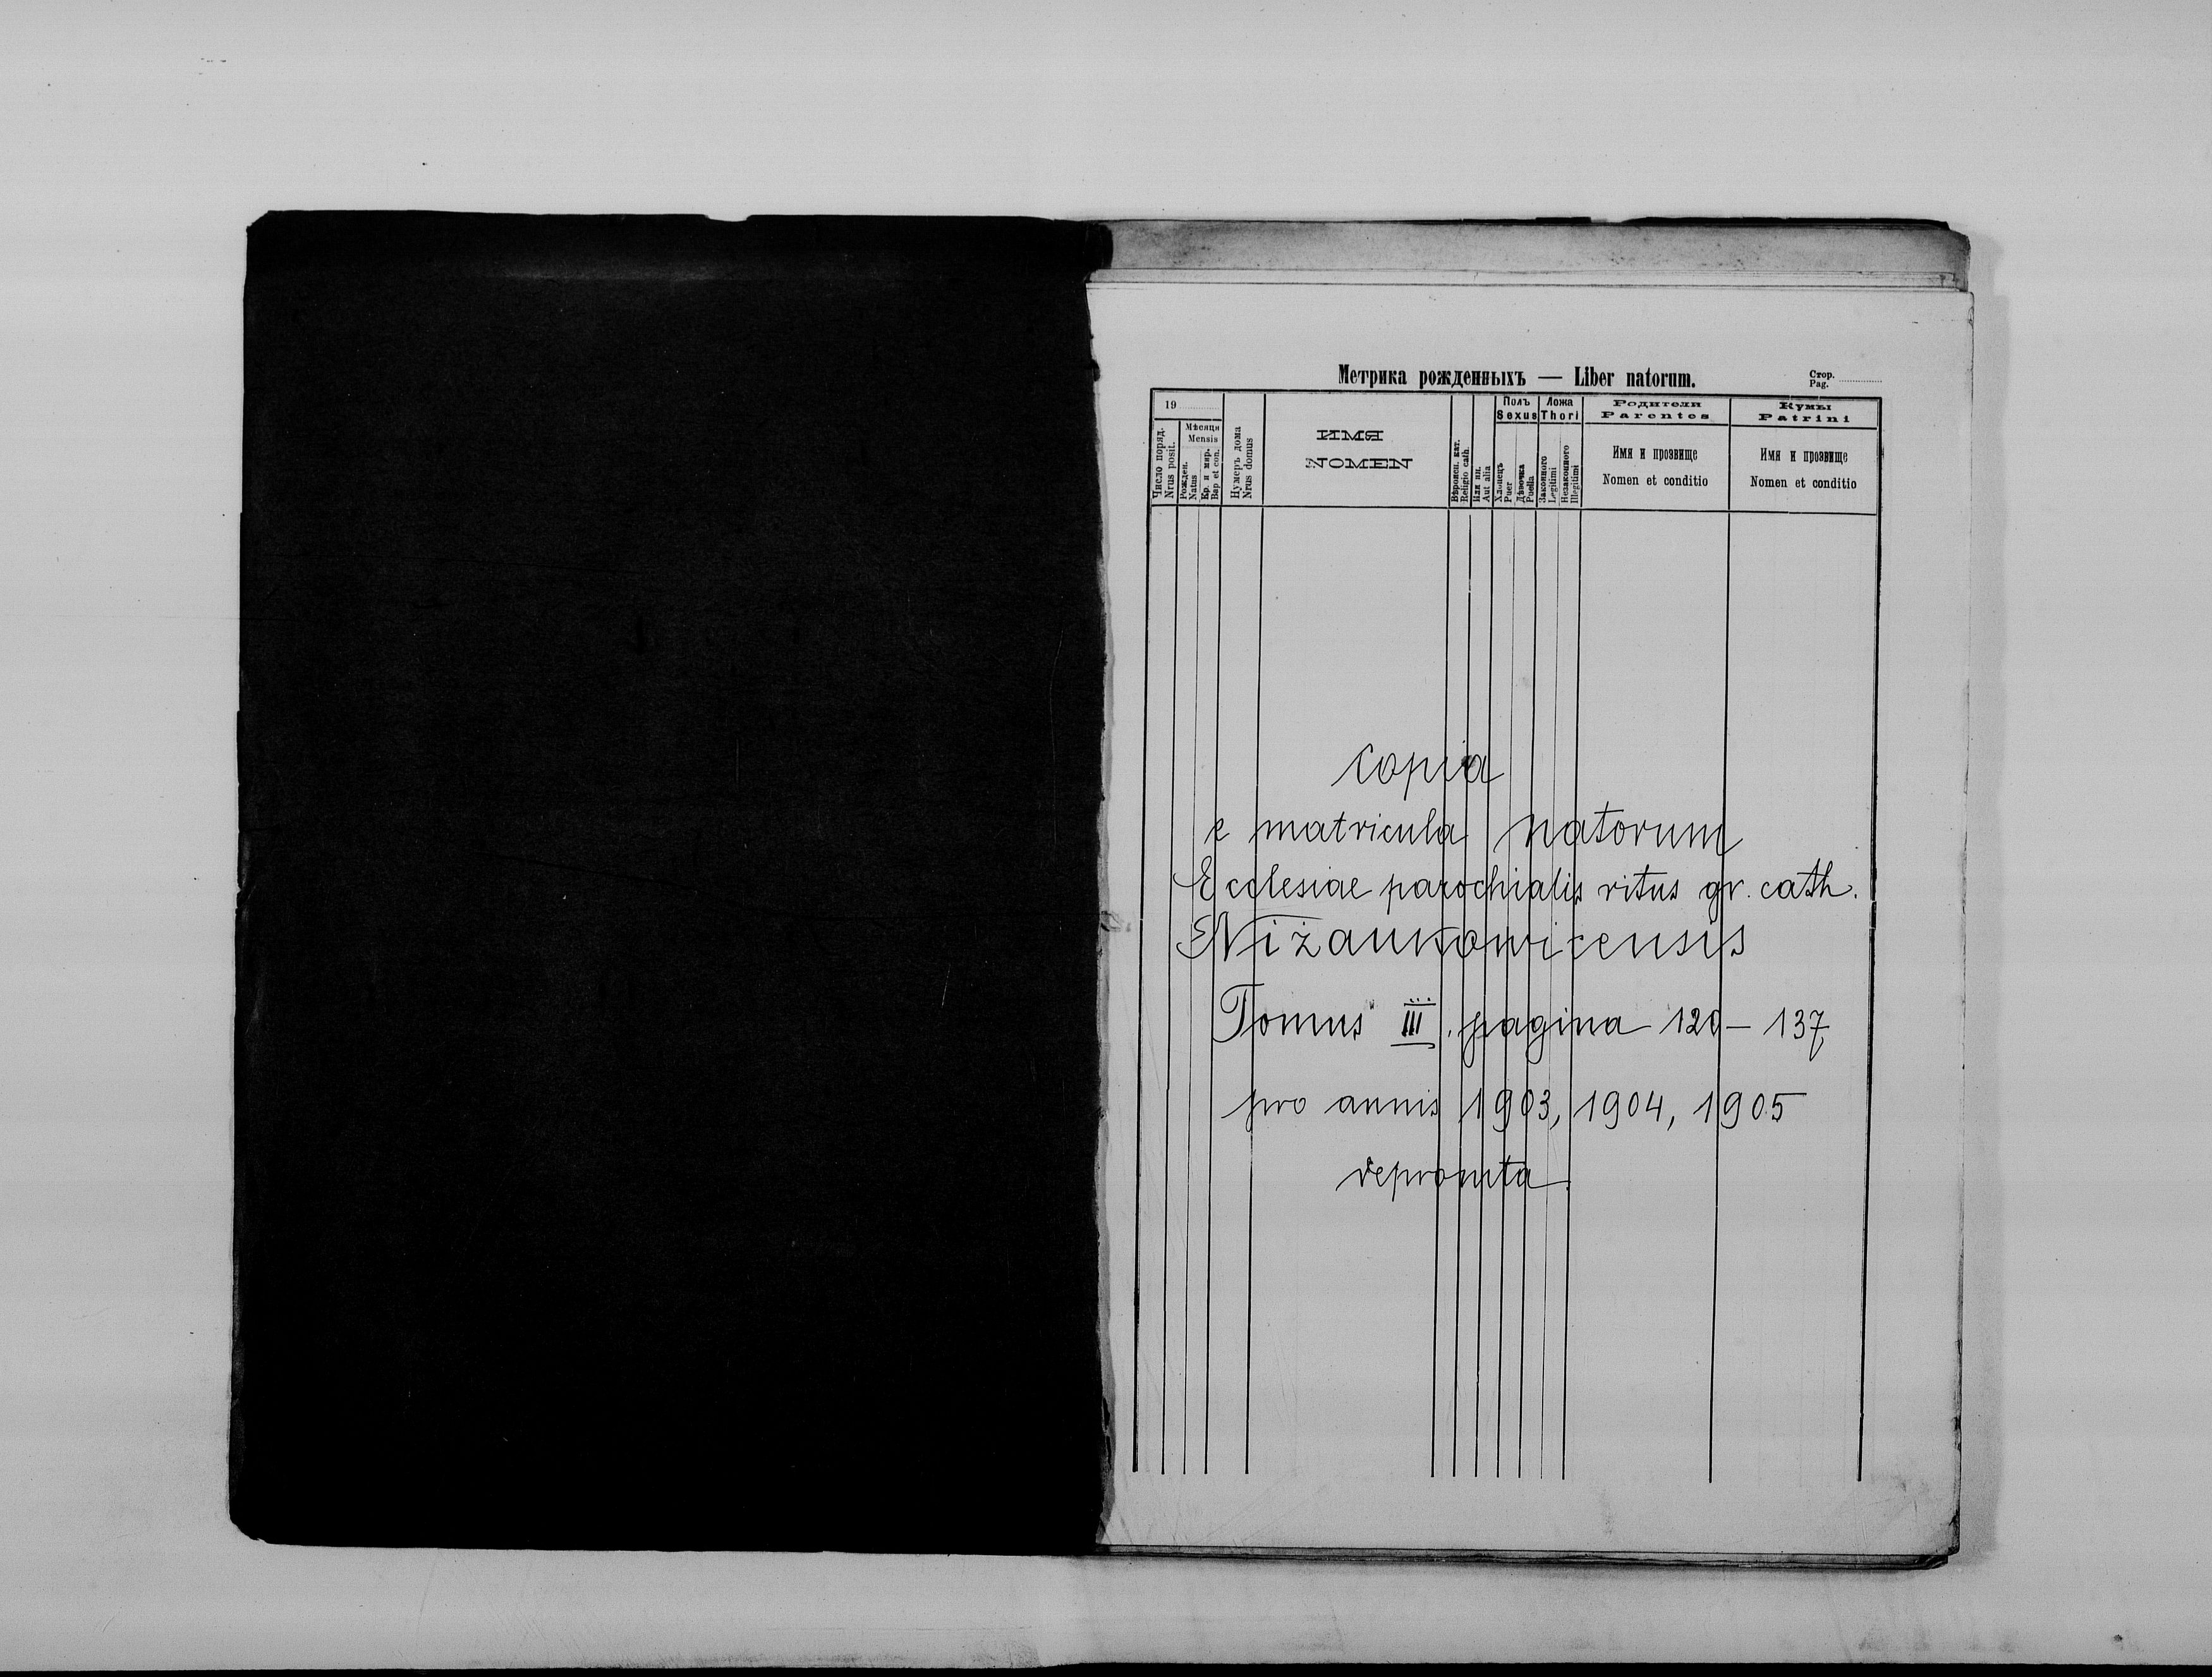 Метрика рожденныхъ — Liber natorum.
Стор.
Pag.
19
Число поряд.
Nrus posit.
Мѣсяця
Mensis
Рожден.
Natus
Кр. и мир.
Bap et con.
Нумеръ дома
Nrus domus
ИМЯ
NOMEN
Вѣроисп. кат.
Religio cath.
Или ин.
Aut alia
Полъ
Sexus
Хлопецъ
Puer
Дѣвочка
Puella
Ложа
Thori
Законного
Legitimi
Незаконного
Illegitimi
Родители
Parentes
Имя и прозвище
Nomen et conditio
Кумы
Patrini
Имя и прозвище
Nomen et conditio
Copia
e matricula natorum
Ecclesiae parochialis ritus gr. cath.
Niżankowicensis
Tomus III. pagina 120 – 137
pro annis 1903, 1904, 1905
depromta.